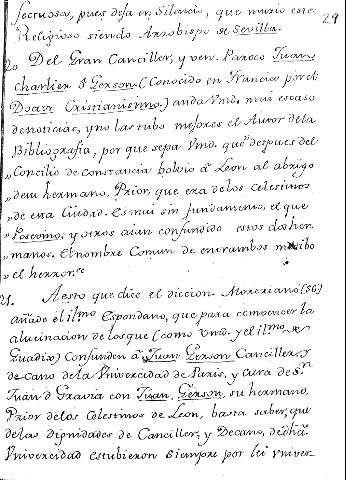 29
fectuosa, pues dexa en Silencio, que murio este
Religioso siendo Arzobispo de Sevilla.
20 Del Gran Canciller, y ven. Paroco Juan
charlier ó Gerson (Conocido en Francia por el
Docor Cristianisimo) anda Vmd. mui escaso
de noticias, y no las tubo mejores el Autor de la
Bibliografia, por que sepa Vmd. qe. despues del
„ Concilio de Constancia bolvio a Leon al abrigo
„ de su hermano, Prior, que era de los Celestinos
„ de esa Ciudad. Es mui sin fundamento, el que
Posevino, y otros aian confundido estos dos her„
manos. El nombre Comun de entrambos motibo
„ el herror. "
21. A esto que dice el diccion. Morexiano (56)
añade el ilmo. Espondano, que para convencer la
alucinacion de los que (como Vmd. y el ilmo. de
Guadix) Confunden a Juan Gerson Canciller, y
decano de la Universidad de Paris, y Cura de Sn.
Juan d Gravia con Juan Gerson, su hermano,
Prior de los Celestinos de Leon, basta saber, que
de las dignidades de Canciller, y Decano, de dha.
Universidad estubieron siempre por lei univer„